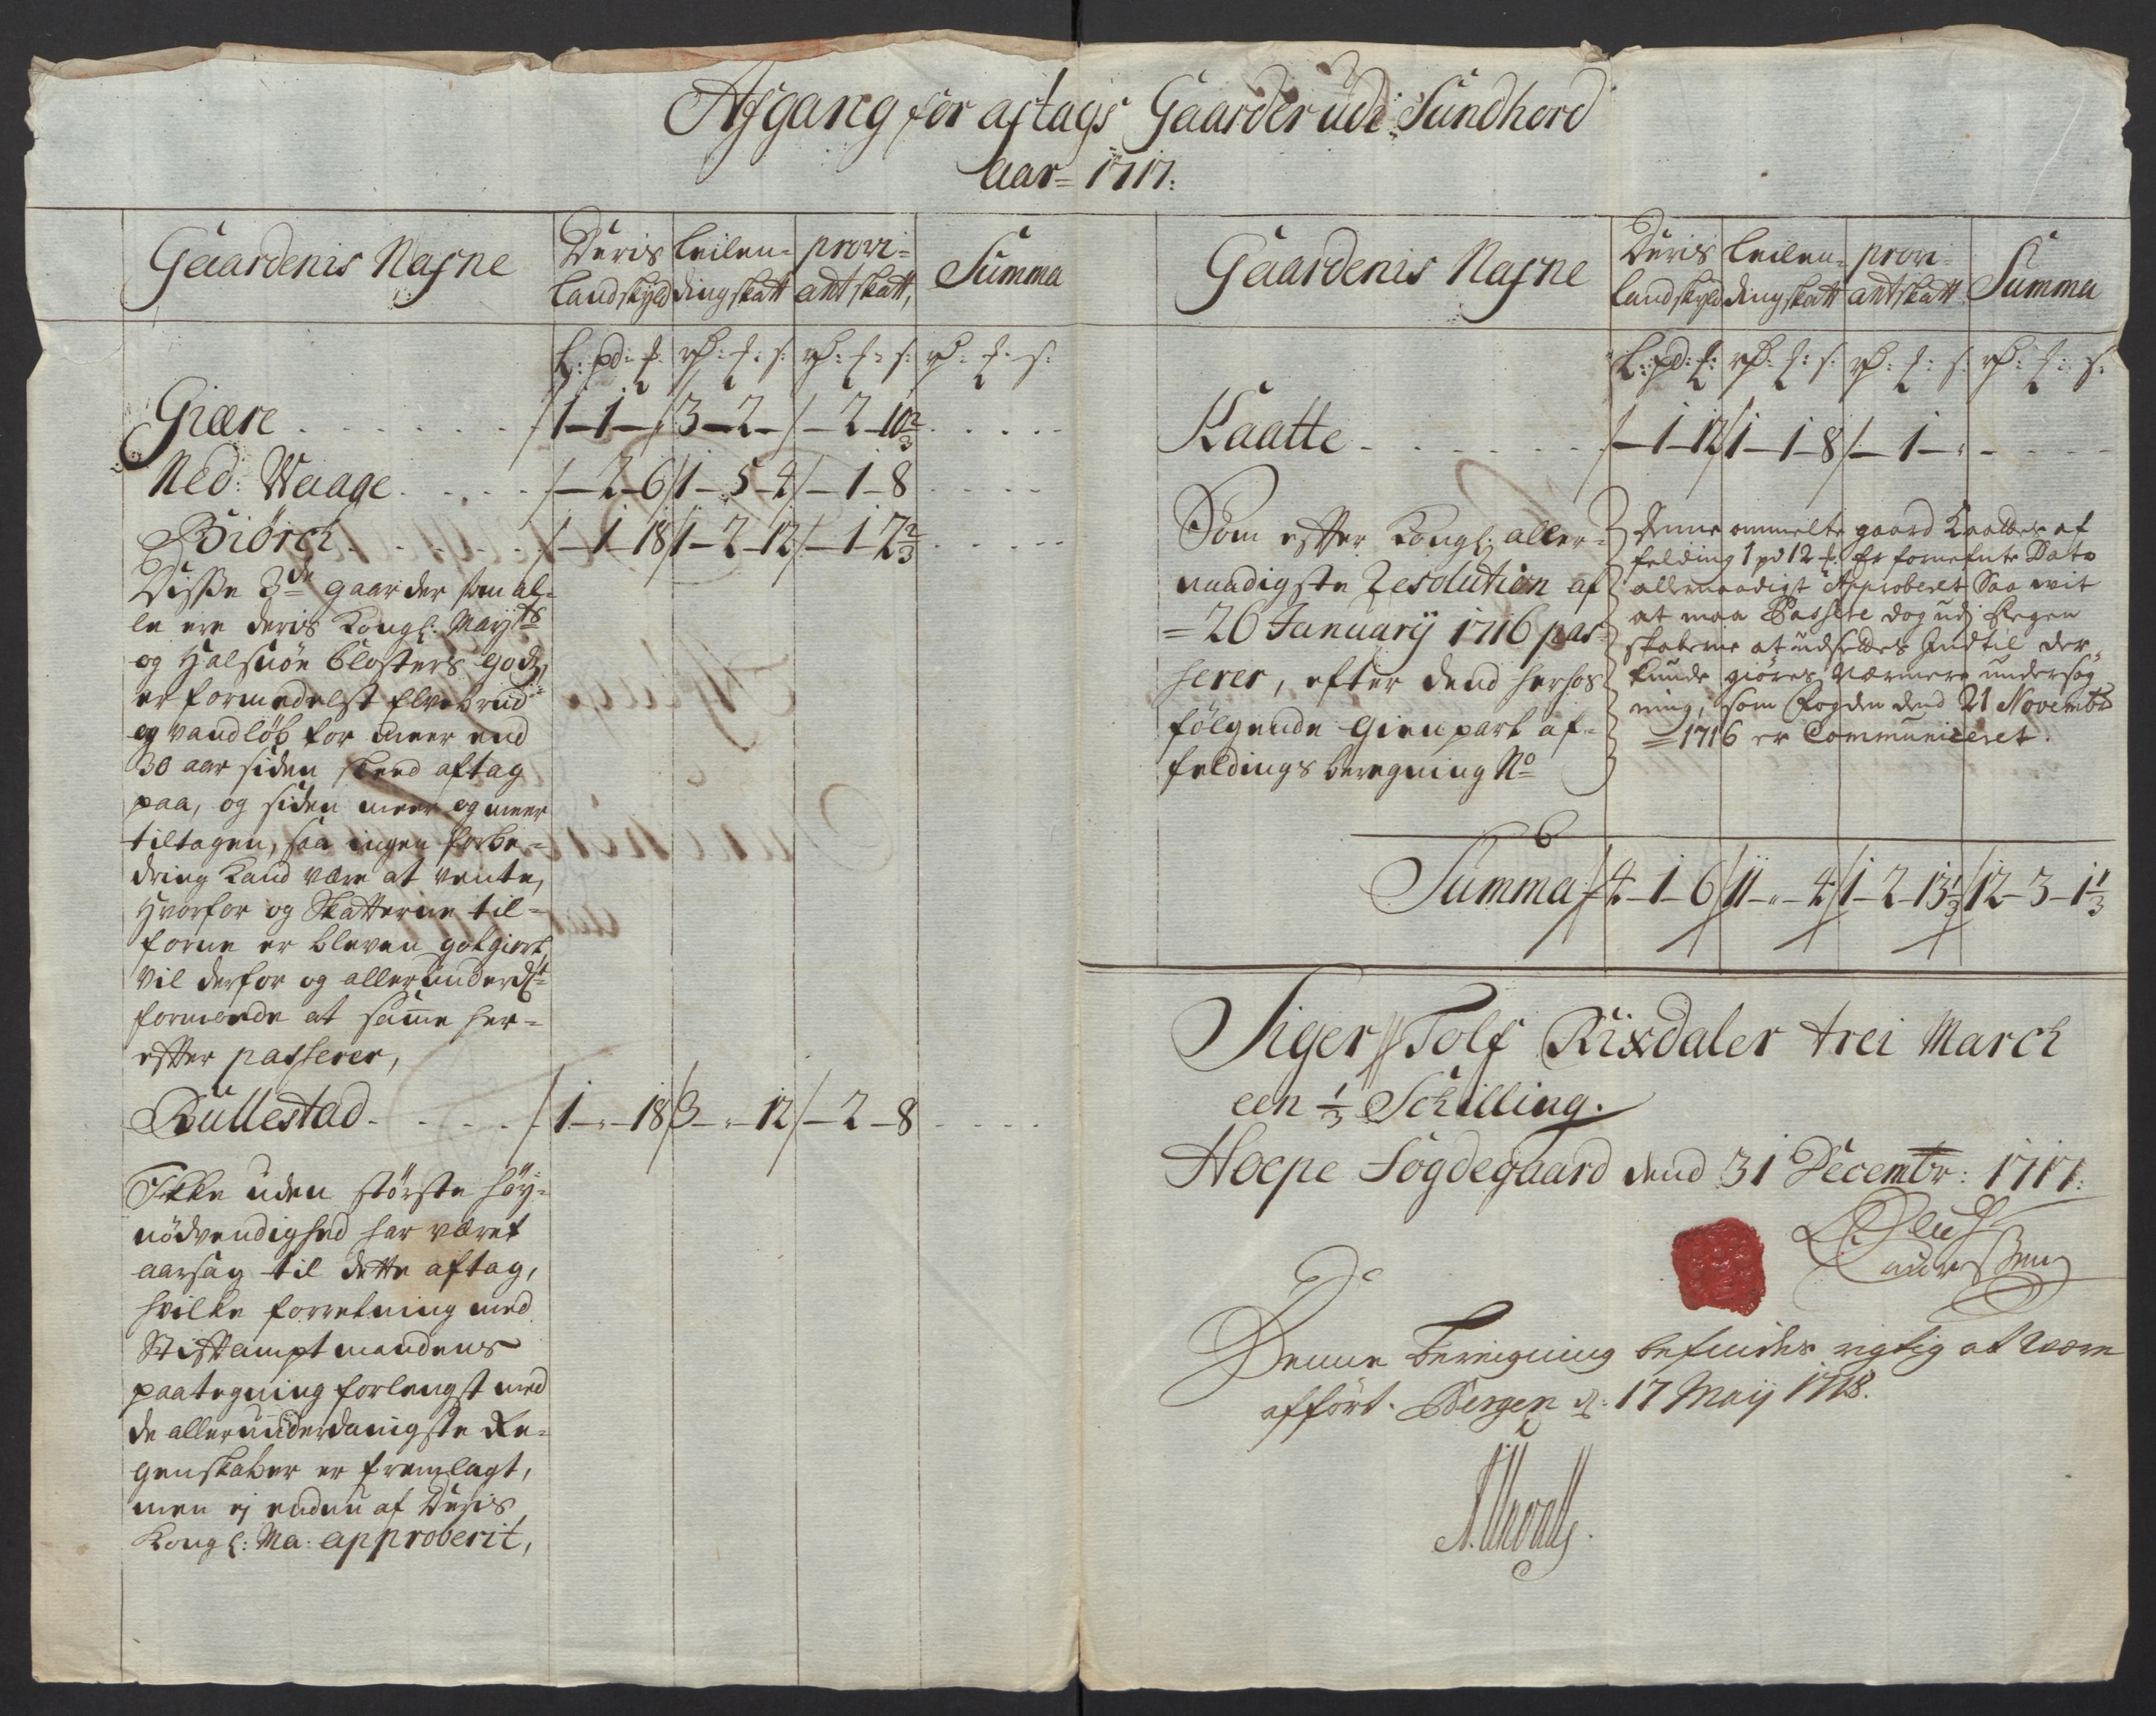 Afgang for aftags Gaarder udi Sundhord
Aar = 1717:
Gaardenis Nafne
Deris Landskyld
Leilen= dingskatt
provi= antskatt,
Summa
L: pd: f: rd: f: s: rd: f: s: rd: f: s:
Giære . . . . . . 1 - 1 - " 3 - 2 - " - 2 - 10 2/3 . . . .
Ned: Waage . . . . - 2 - 6 1 - 5 - 4 - 1 - 8 . . . .
Biørch . . . . . - 1 - 18 1 - 2 - 12 - 1 - 2 2/3 . . . .
Disse 3de gaarder som al=
le ere deris Kongl: Mayts
og Halsnøe Closters godz
er formedelst Elvebrud
og vandløb for meer end
30 aar siden skeed aftag
paa, og siden meer og meer
tiltagen, saa ingen forbe=
dring kand være at vente,
hvorfor og Skatterne til=
forne er bleven gotgiort,
vil derfor og allerunderdst=
formode at samme her=
effter passerer,
Bullestad . . . . . 1 - " - 18 3 - " - 12 - 2 - 8 . . . .
Icke uden største høy=
nødvendighed har været
aarsag til dette aftag,
hvilke forretning med
Stiftamptmandens
paategning forlengst med
de allerunderdanigste Re=
genskaber er fremlagt,
men ej endnu af Deris
Kongl: Ma: approberit,
Gaardenis Nafne
Deris Landskyld
Leilen= dingskatt
provi= antskatt
Summa
L: pd: f: rd: f: s: rd: f: s: rd: f: s:
Kaatte . . . . . - 1 - 12 1 - 1 - 8 - 1 - " . . . .
Som effter Kongl: aller=
naadigste Resolution af
= 26 January 1716 pas=
serer, efter dend herhos
følgende Gienpart af=
feldings beregning No
6
Denne ommelte gaard Kaattes af
felding 1 pd 12 f: Er fornefnte Dato
allernaadigst Approberet Saa wit
at maa Passere dog udj Regen
skaberne at udsettes Indtil der
kunde giøres Nærmere undersøg
ning, som Fogden dend 21 Novembr
= 1716 er Communiceret.
Summa 4 - 1 - 6 11 - " - 4 1 - 2 - 13 1/3 12 - 3 - 1 1/3
Siger Tolf Rixdaler trei March
een 1/3 Schilling.
Hoepe Fogdegaard dend 31 Decembr: 1717:
Laurssen
Denne Beregning befindes rigtig at være
afført. Bergen d: 17 Maij 1718.